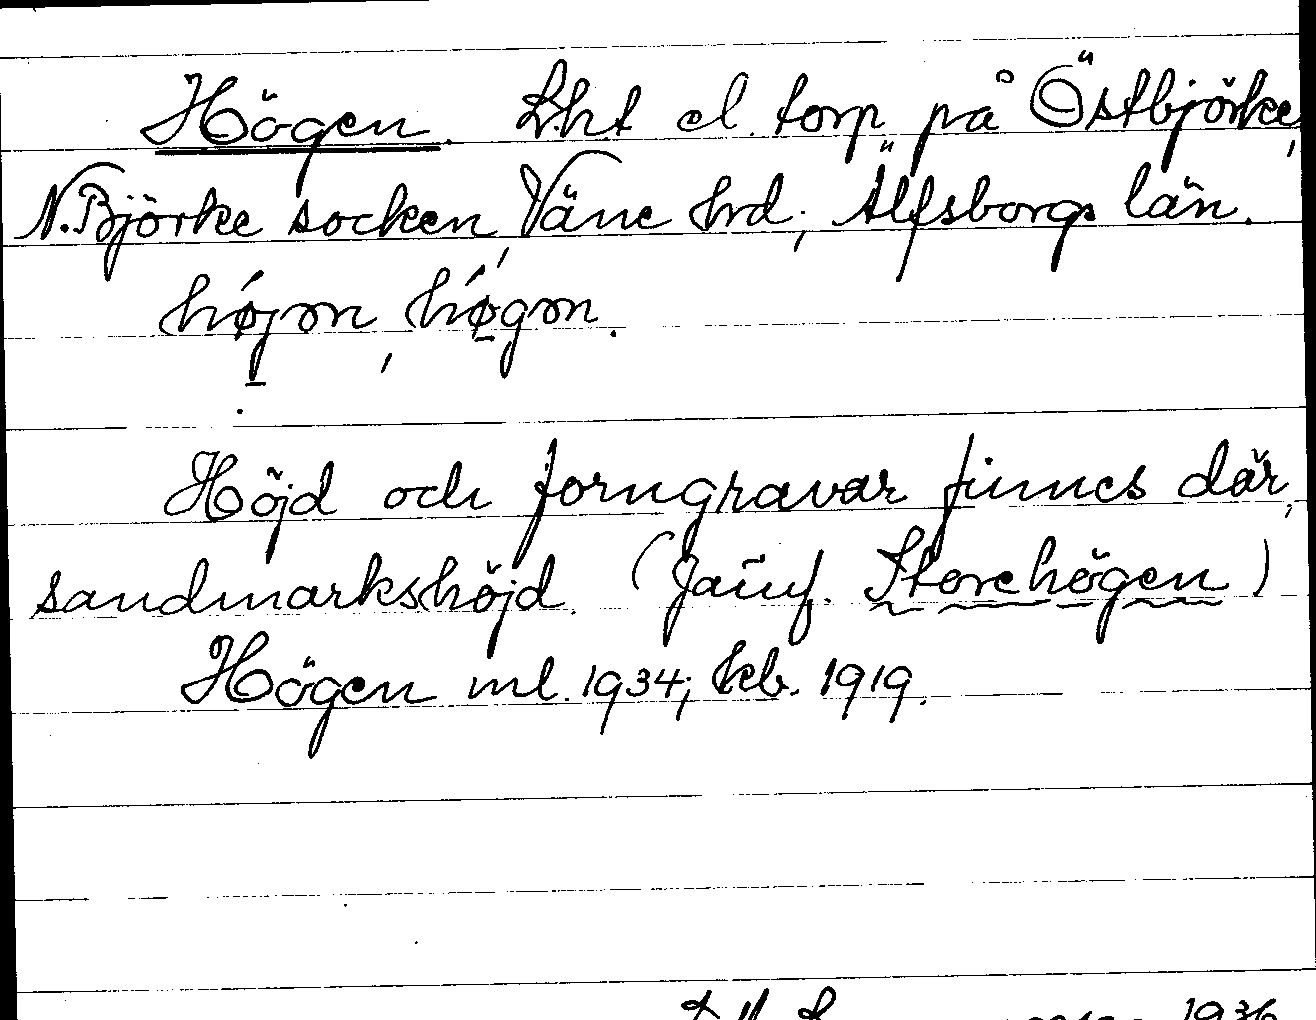 Högen. Lht el. torp på Östbjörke,
N. Björke socken, Väne hrd; Älfsborgs län.
högen, högen.
Höjd och forngravar finnes där,
sandmarkshöjd. (Jämf. Storehögen)
Högen ml. 1934; kb. 1919.
1936